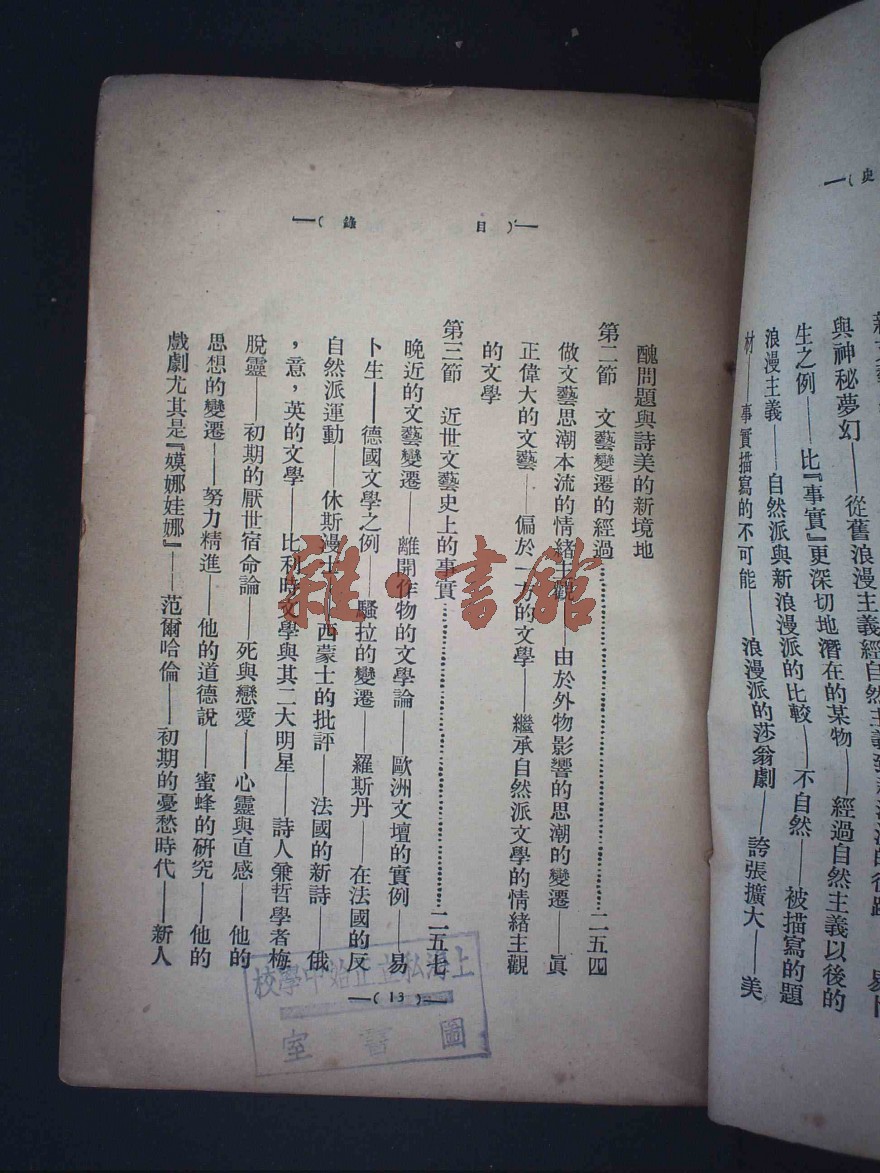 史
與神秘夢幻——從舊浪漫主義經自然主義到
生之例——比『事實』更深切地潛在的某物——經過自然主義以後的
浪漫主義——自然派與新浪漫派的比較——不自然——被描寫的題
材——事實描寫的不可能——浪漫派的莎翁劇——誇張擴大——美
目錄
醜問題與詩美的新境地
第二節 文藝變遷的經過……二五四
做文藝思潮本流的情緒主觀——由於外物影響的思潮的變遷——眞
正偉大的文藝——偏於一方的文學——繼承自然派文學的情緒主觀
的文學
第三節 近世文藝史上的事實……二五七
晚近的文藝變遷——離開作物的文學論——歐洲文壇的實例——易
卜生——德國文學之例——騷拉的變遷——羅斯丹——在法國的反
自然派運動——休斯漫士——西蒙士的批評——法國的新詩——俄
，意，英的文學——比利時文學與其二大明星——詩人兼哲學者梅
脫靈——初期的厭世宿命論——死與戀愛——心靈與直感——他的
思想的變遷——努力精進——他的道德說——蜜蜂的研究——他的
戲劇尤其是『嫫娜娃娜』——范爾哈倫——初期的憂愁時代——新人
(13)
上海私立正始中學校
圖書室
雜·書館